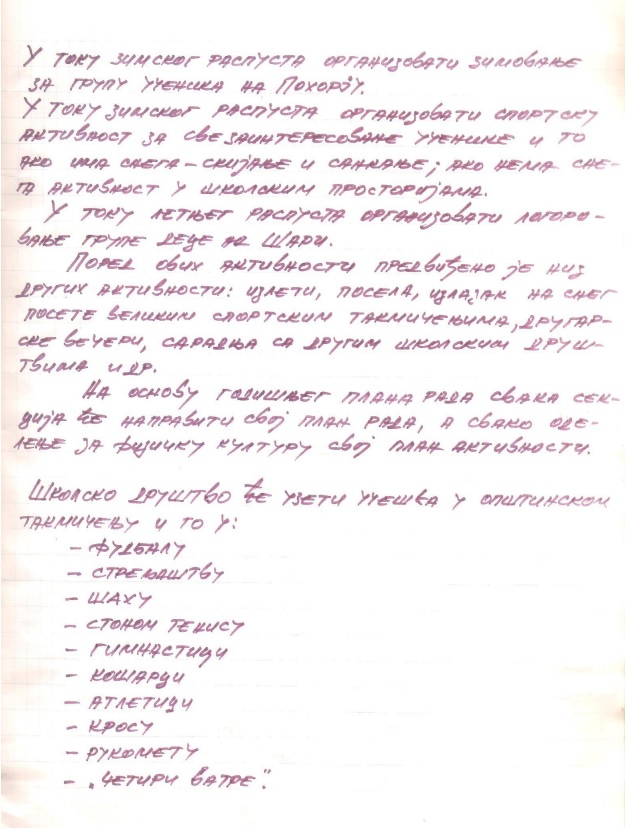 У току зимског распуста организовати зимовање
за групу ученика на Похорју.
У току зимског распуста организовати спортску
активност за све заинтересоване ученике и то
ако има снега – скијање и санкање; ако нема сне-
га активност у школским просторијама.
У току летњег распуста организовати логоро-
вање групе деце на Шари.
Поред ових активности предвиђено је низ
других активности: излети, посела, излазак на снег
посете великим спортским такмичењима, другар-
ске вечери, сарадња са другим школским друш-
твима и др.
На основу годишњег плана рада свака сек-
ција ће направити свој план рада, а свако оде-
лење за физичку културу свој план активности.
Школско друштво ће узети учешћа у општинском
такмичењу и то у:
– фудбалу
– стрељаштву
– шаху
– стоном тенису
– гимнастици
– кошарци
– атлетици
– кросу
– рукомету
– „Четири ватре".